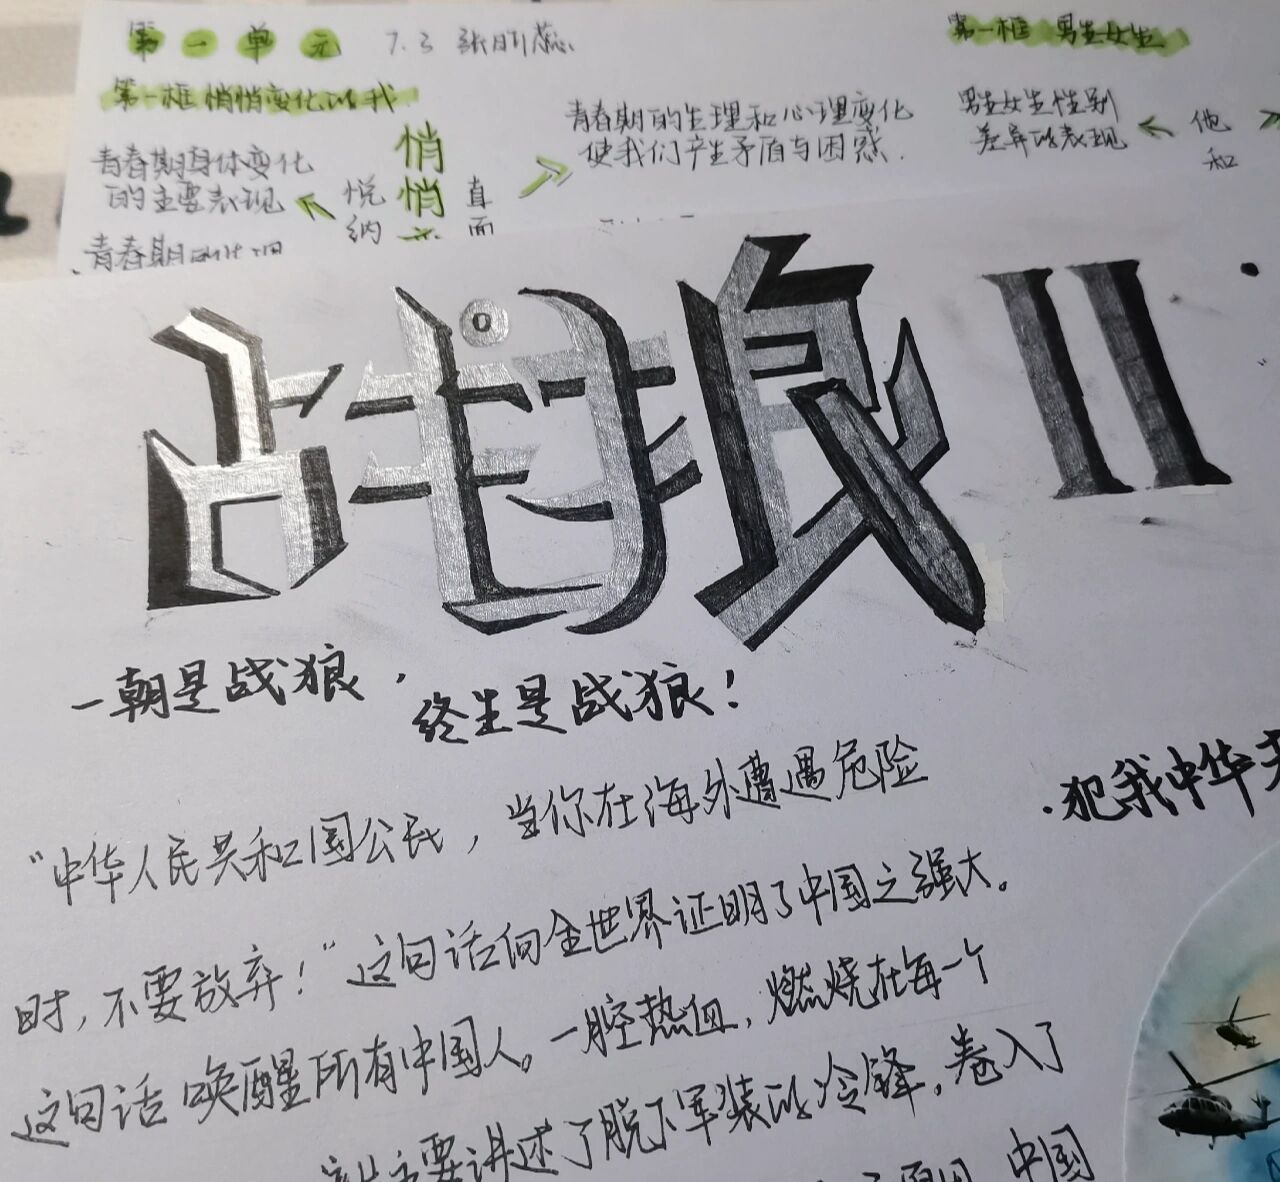 第一单元 7.3
第一框 男生女生
第一框 悄悄变化的我
青春期的生理和心理变化
使我们产生矛盾与困惑.
男生女生性别
差异的表现
他
和
青春期身体变化
的主要表现
悦
纳
悄
悄
直
面
青春期
战狼 II
一朝是战狼，
终生是战狼！
·犯我中华
“中华人民共和国公民，当你在海外遭遇危险
时，不要放弃！”这句话向全世界证明了中国之强大。
这句话唤醒所有中国人。一腔热血，燃烧在每一个
主要讲述了脱下军装的冷锋，卷入了
中国